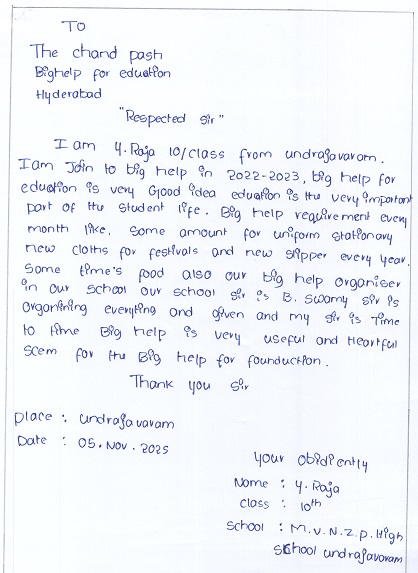 To
The chand pash
Bighelp for eduation
Hyderabad
"Respected sir"
I am Y. Raja 10/class from undrajavaram.
I am Join to big help in 2022-2023, big help for
eduation is very Good idea eduation is the very important
part of the student life. Big help requirement every
month like. Some amount for uniform stationary
new cloths for festivals and new slipper every year.
Some time's food also our big help organiser
in our school our school sir is B. Swamy sir is
organining everyting and given and my sir is Time
to time Big help is very useful and Heartful
scem for the Big help for founduction.
Thank you sir
place : undrajavaram
Date : 05. Nov. 2025
your obidiently
Name : Y. Raja
class : 10th
school : M.V.N.Z.P. High
school undrajavaram